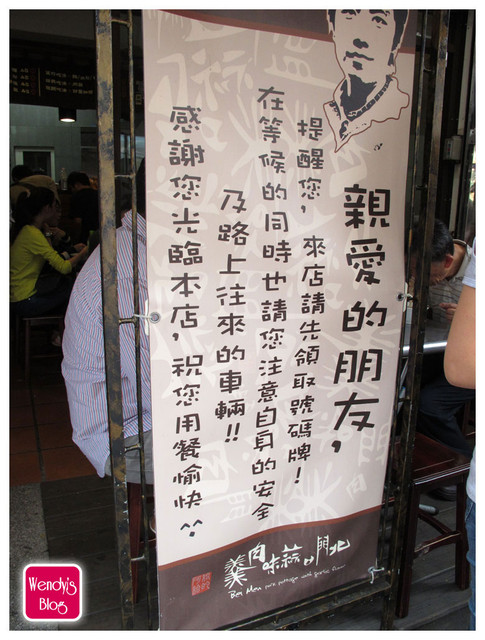 親愛的朋友,
提醒您, 來店請先領取號碼牌!
在等候的同時也請您注意自身的安全
及路上往來的車輛!!
感謝您光臨本店, 祝您用餐愉快^^
北門口蒜味肉羹
Bei Men pork pottage with garlic
Wendy's
Blog